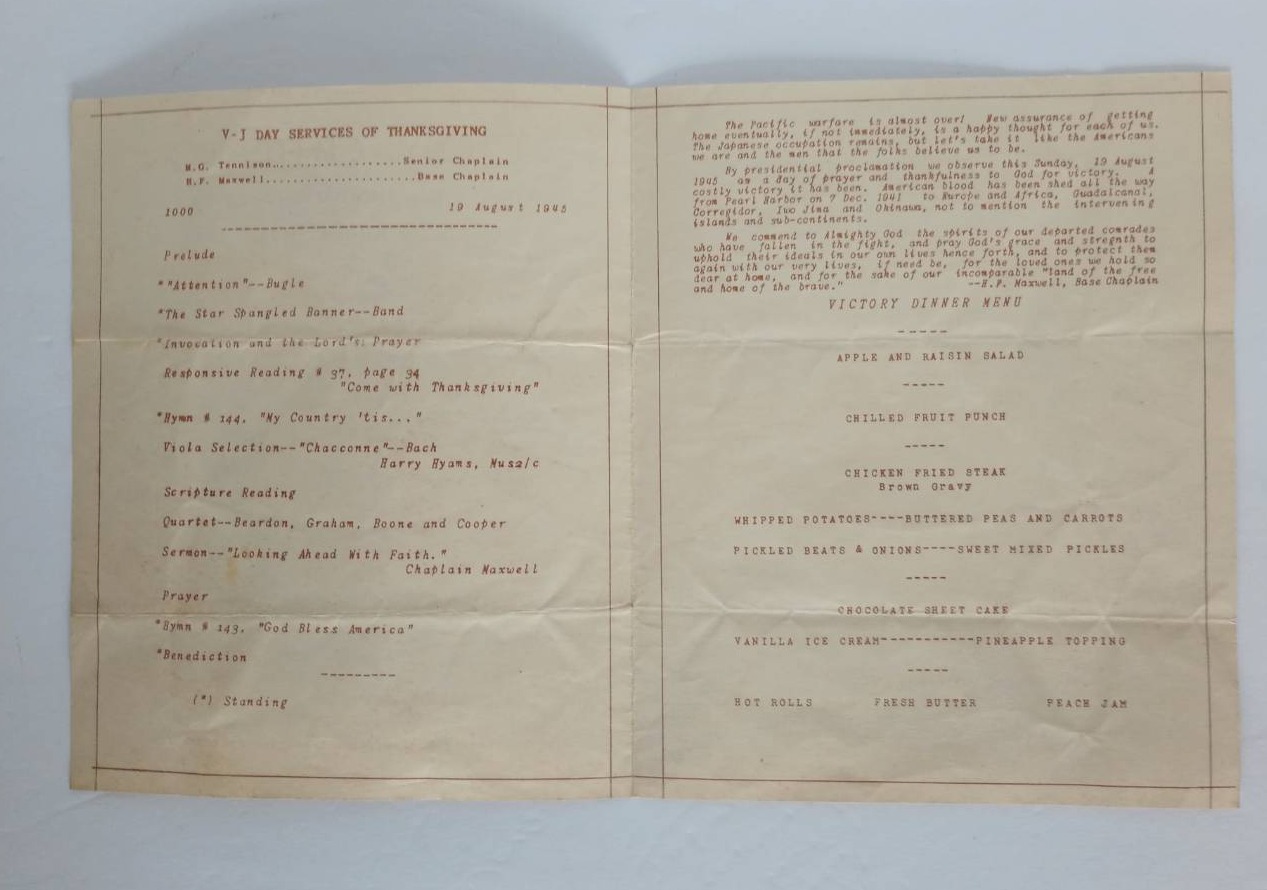 V-J DAY SERVICES OF THANKSGIVING
M.G. Tennison...................Senior Chaplain
H.F. Maxwell.......................Base Chaplain
1000 19 August 1945
Prelude
*"Attention"--Bugle
*The Star Spangled Banner--Band
*Invocation and the Lord's Prayer
Responsive Reading # 37, page 34
"Come with Thanksgiving"
*Hymn # 144, "My Country 'tis..."
Viola Selection--"Chacconne"--Bach
Harry Hyams, Mus2/c
Scripture Reading
Quartet--Beardon, Graham, Boone and Cooper
Sermon--"Looking Ahead With Faith."
Chaplain Maxwell
Prayer
*Hymn # 143, "God Bless America"
*Benediction
---------
(*) Standing
The Pacific warfare is almost over! New assurance of getting
home eventually, if not immediately, is a happy thought for each of us.
The Japanese occupation remains, but let's take it like the Americans
we are and the men that the folks believe us to be.
By presidential proclamation we observe this Sunday, 19 August
1945 as a day of prayer and thankfulness to God for victory. A
costly victory it has been. American blood has been shed all the way
from Pearl Harbor on 7 Dec. 1941 to Europe and Africa, Guadalcanal,
Corregidor, Iwo Jima and Okinawa, not to mention the intervening
islands and sub-continents.
We commend to Almighty God the spirits of our departed comrades
who have fallen in the fight, and pray God's grace and stregnth to
uphold their ideals in our own lives hence forth, and to protect them
again with our very lives, if need be, for the loved ones we hold so
dear at home, and for the sake of our incomparable "land of the free
and home of the brave." --H.F. Maxwell, Base Chaplain
VICTORY DINNER MENU
-----
APPLE AND RAISIN SALAD
-----
CHILLED FRUIT PUNCH
-----
CHICKEN FRIED STEAK
Brown Gravy
WHIPPED POTATOES----BUTTERED PEAS AND CARROTS
PICKLED BEATS & ONIONS----SWEET MIXED PICKLES
-----
CHOCOLATE SHEET CAKE
VANILLA ICE CREAM-----------PINEAPPLE TOPPING
-----
HOT ROLLS FRESH BUTTER PEACH JAM